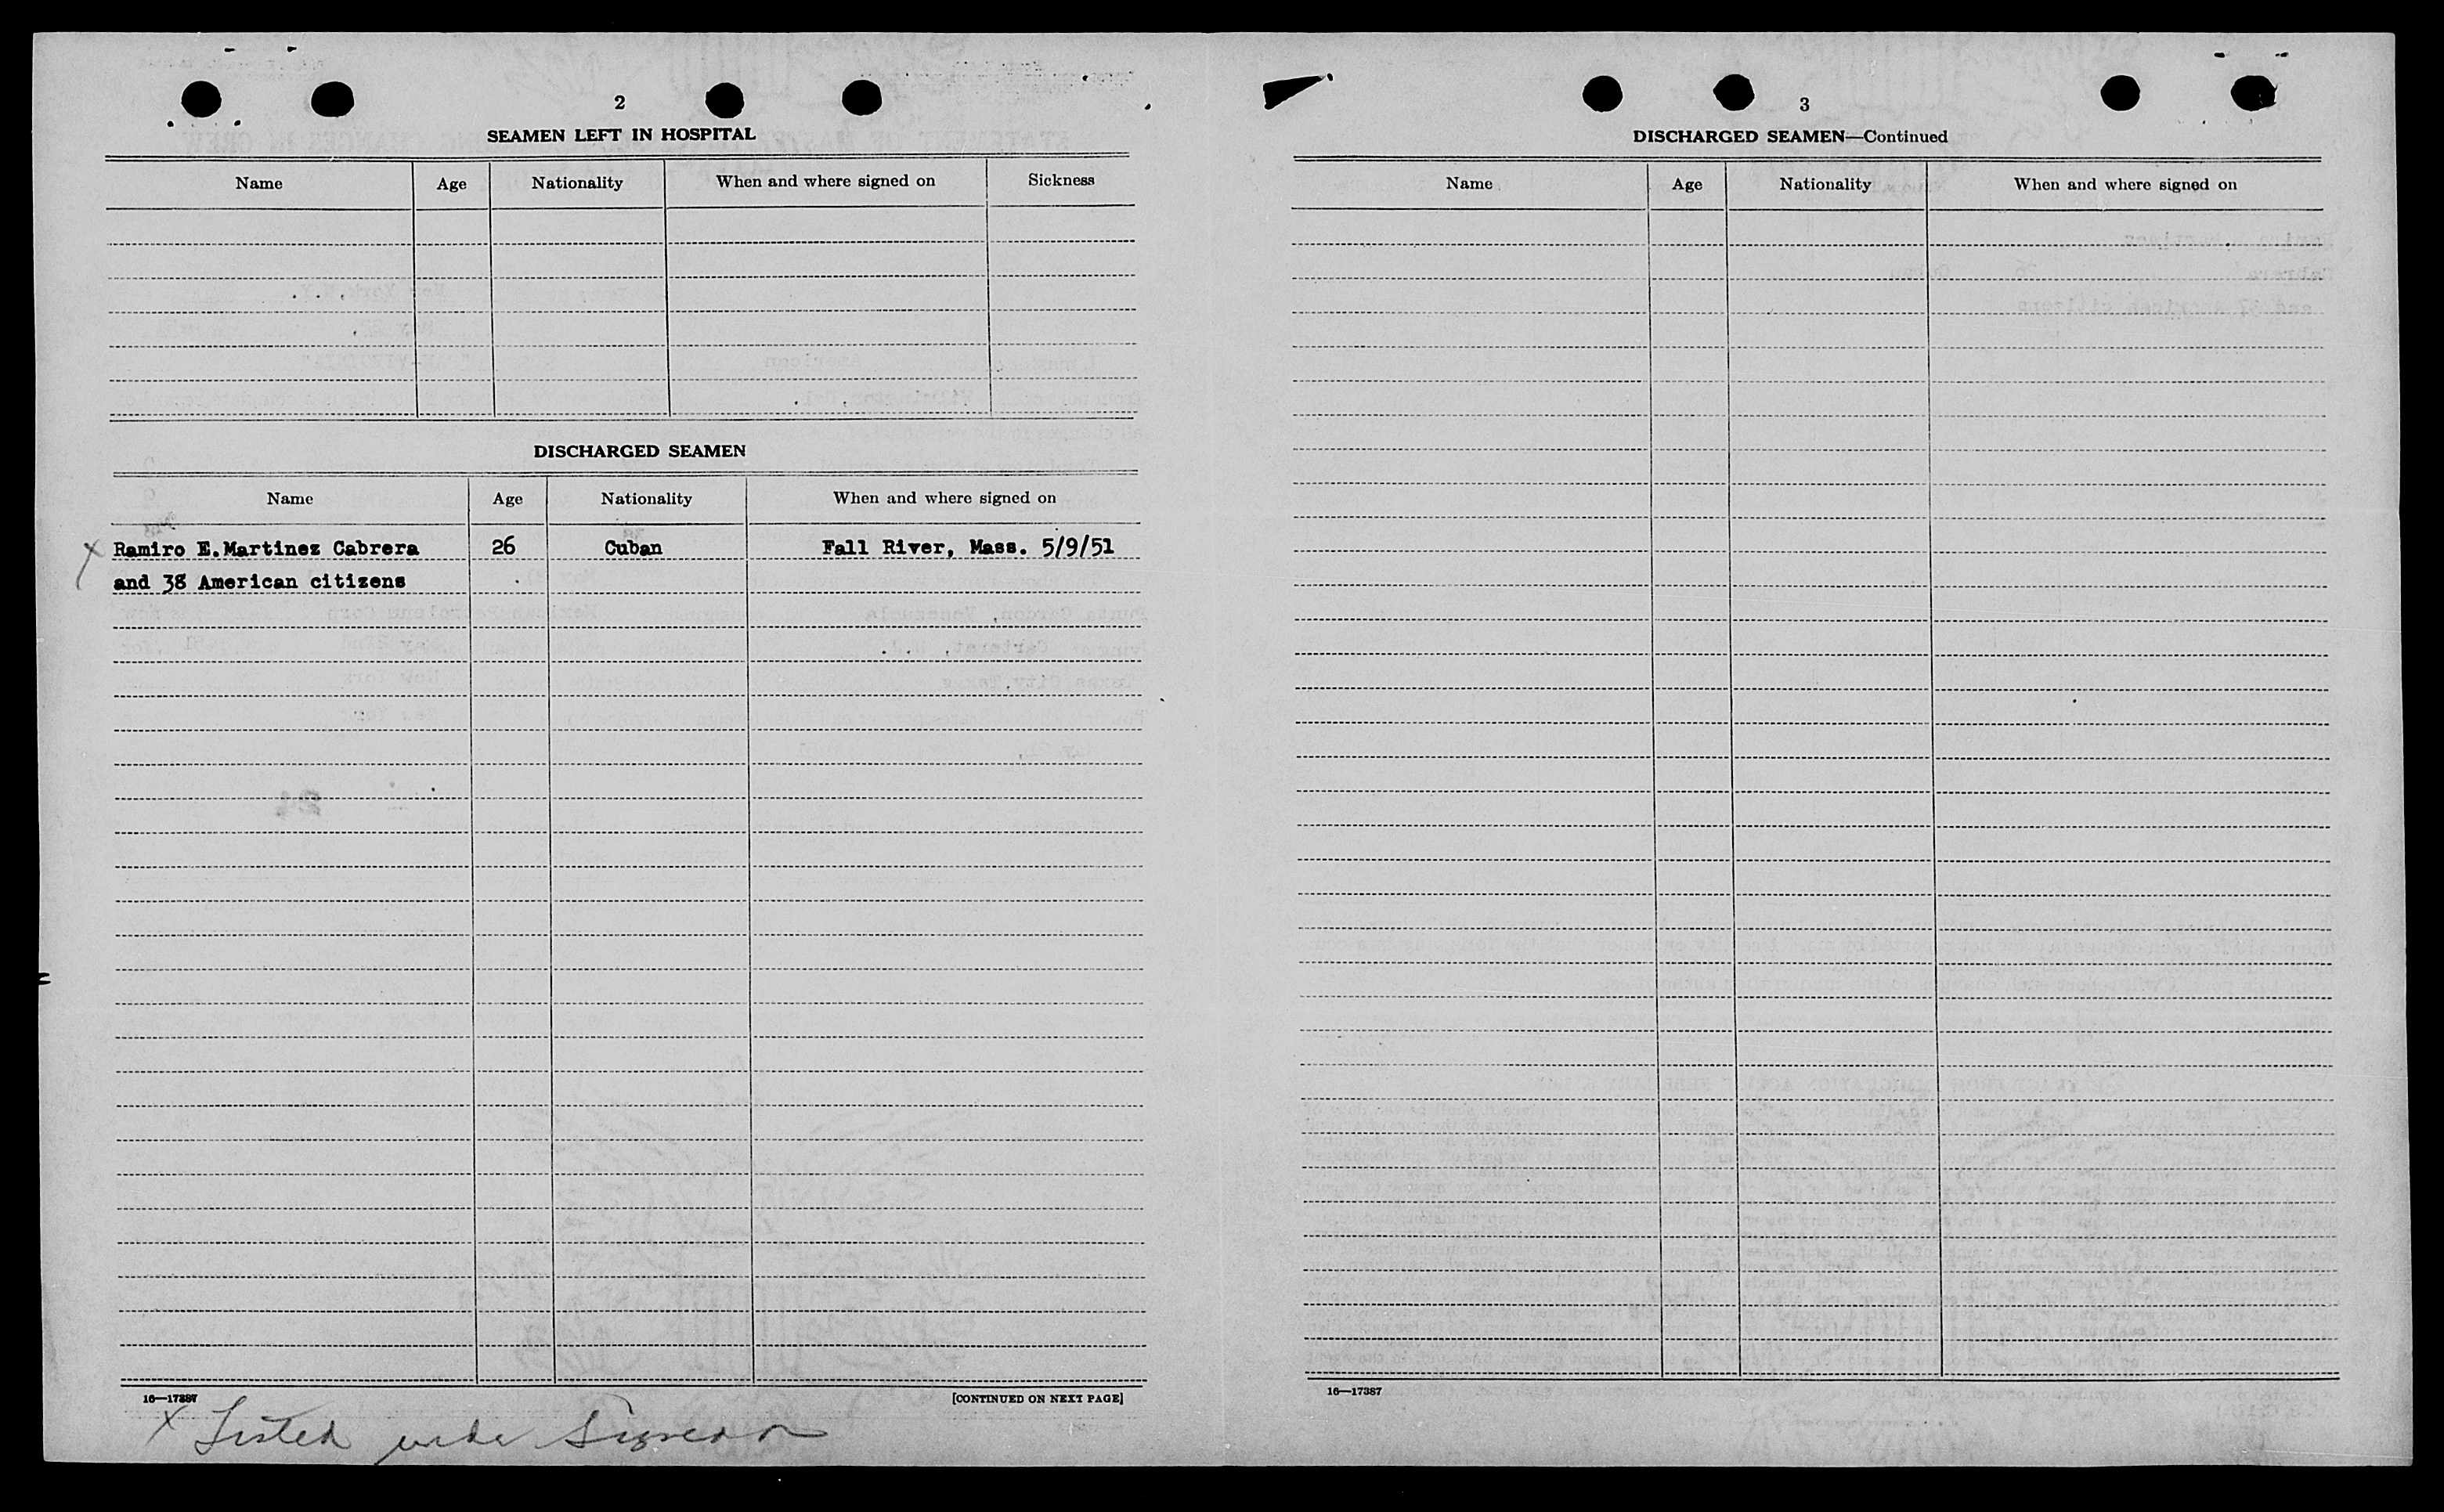 2
SEAMEN LEFT IN HOSPITAL
Name Age Nationality When and where signed on Sickness
DISCHARGED SEAMEN
Name Age Nationality When and where signed on
x Ramiro E.Martinez Cabrera 26 Cuban Fall River, Mass. 5/9/51
and 38 American citizens
16—17387 [CONTINUED ON NEXT PAGE]
x Listed under Signed on
3
DISCHARGED SEAMEN—Continued
Name Age Nationality When and where signed on
16—17387